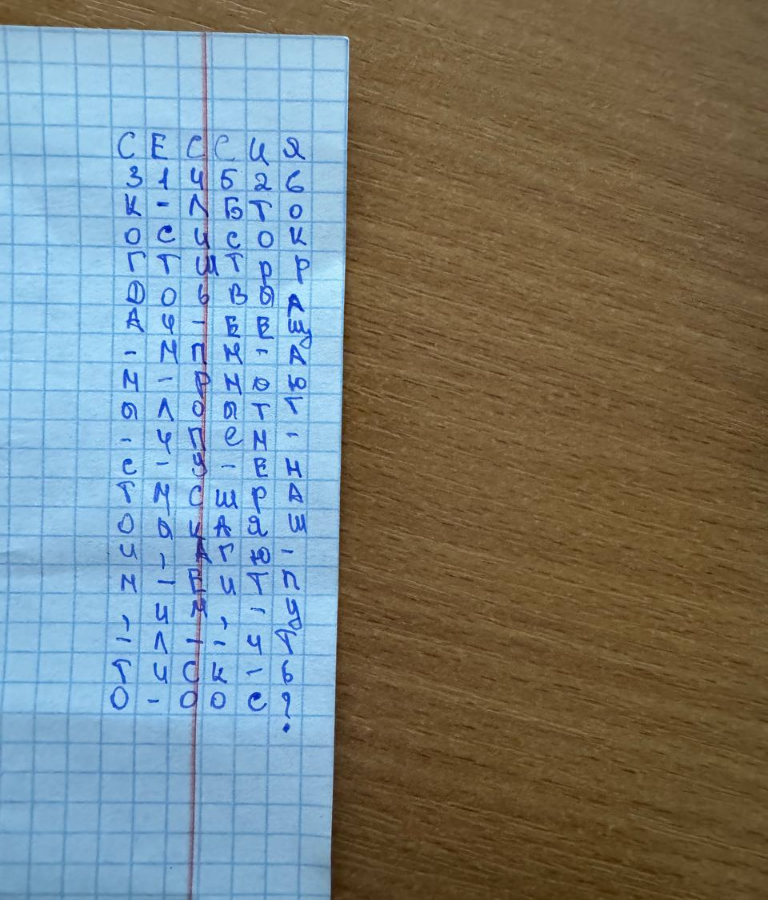 С Е С С И Я
3 1 4 5 2 6
К - Л Б Т О
О С И С О К
Г Т Ш Т Р Р
Д О Ь В Ы А
А И - Е Е Щ
- М П Н - А
М - Р Н О Ю
Ы Л О Ы Т Т
- И П Е М -
С - У - Е Н
Т М С Ш Р А
О Ы К А Я Ш
И , А Г Ю -
М - Е И Т П
, И М , - У
- Л - - И Т
Т И С К - Ь
О - О О С ?